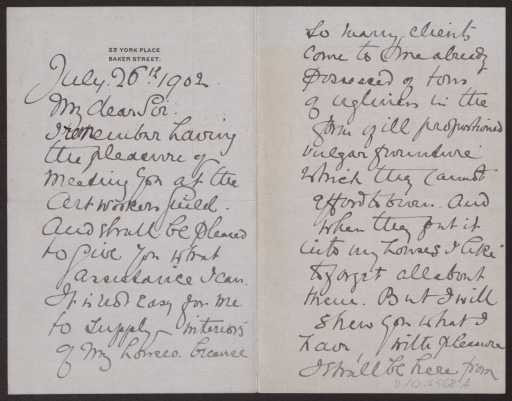 23 YORK PLACE
BAKER STREET.
July. 26th 1902.
My dear Sir
I remember having
the pleasure of
meeting you at the
Art workers guild.
And shall be pleased
to give you what
assistance I can.
It is not easy for me
to supply interiors
of my houses. because
So many clients
come to me already
possessed of tons
of ugliness in the
form of ill proportioned
vulgar furniture
which they cannot
afford to burn. And
when they put it
into my houses I like
to forget all about
them. But I will
shew you what I
have, with pleasure
I shall be here from